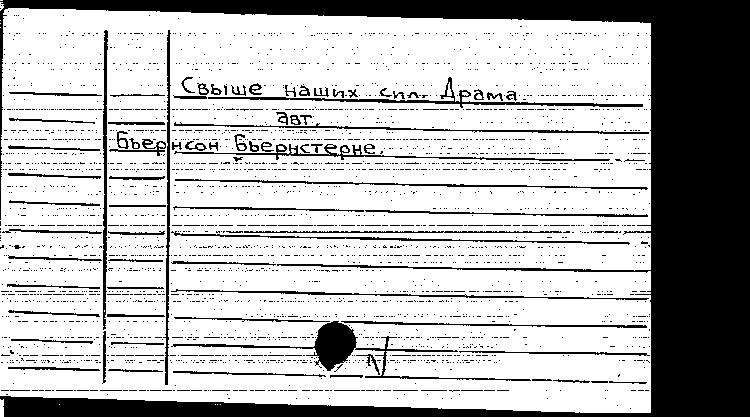 Свыше наших сил. Драма
авт.
Бьернсон Бьернстерне.